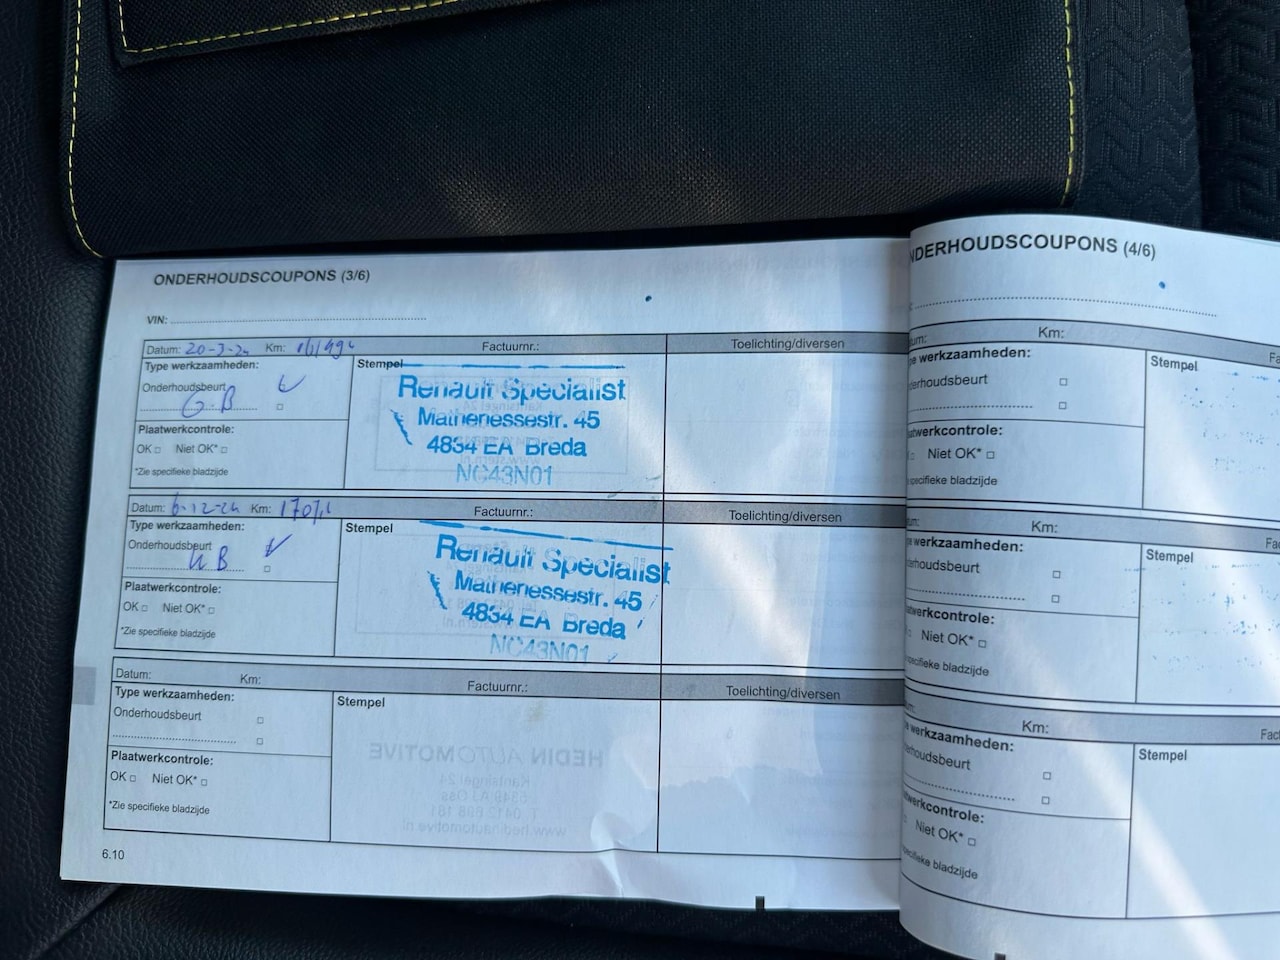 ONDERHOUDSCOUPONS (3/6)
VIN:
Datum: 20-3-24 Km: Factuurnr.: Toelichting/diversen
Type werkzaamheden: Stempel
Onderhoudsbeurt
G B
Plaatwerkcontrole:
OK Niet OK*
*Zie specifieke bladzijde
Renault Specialist
Mathenessestr. 45
4834 EA Breda
NC43N01
Datum: 6-12-24 Km: Factuurnr.: Toelichting/diversen
Type werkzaamheden: Stempel
Onderhoudsbeurt
B
Plaatwerkcontrole:
OK Niet OK*
*Zie specifieke bladzijde
Renault Specialist
Mathenessestr. 45
4834 EA Breda
NC43N01
Datum: Km: Factuurnr.: Toelichting/diversen
Type werkzaamheden: Stempel
Onderhoudsbeurt
Plaatwerkcontrole:
OK Niet OK*
*Zie specifieke bladzijde
HEDIN AUTOMOTIVE
Kantsingel 24
5349 AJ Oss
www.hedinautomotive.nl
6.10
NDERHOUDSCOUPONS (4/6)
um: Km: Fa
pe werkzaamheden: Stempel
derhoudsbeurt
aatwerkcontrole:
Niet OK*
e specifieke bladzijde
um: Km: Fac
e werkzaamheden: Stempel
derhoudsbeurt
aatwerkcontrole:
Niet OK*
specifieke bladzijde
Km: Fact
werkzaamheden: Stempel
rhoudsbeurt
werkcontrole:
Niet OK*
ecifieke bladzijde